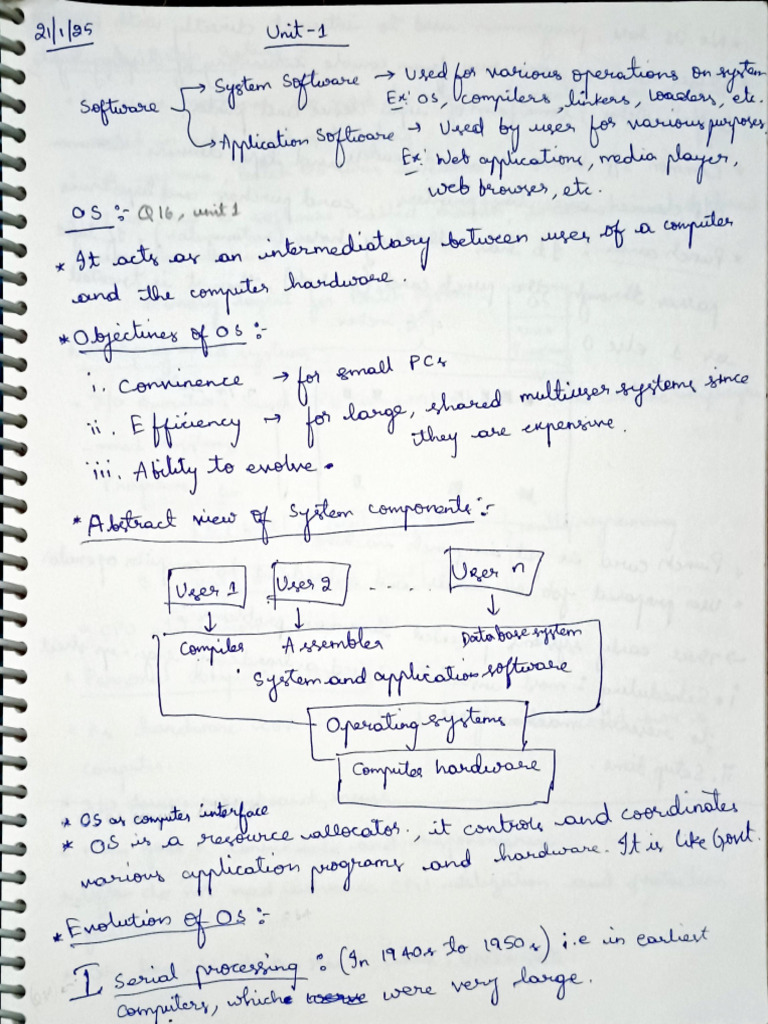 21/1/25
Unit-1
Software → System Software → Used for various operations on system
Ex: OS, compilers, linkers, loaders, etc.
→ Application Software → Used by user for various purposes
Ex: Web applications, media player,
web browser, etc.
OS :- Q16, unit 1
* It acts as an intermediatary between user of a computer
and the computer hardware.
* Objectives of OS :-
i. Convinence → for small PCs
ii. Efficiency → for large, shared multiuser systems since
they are expensive.
iii. Ability to evolve.
* Abstract view of System components :-
User 1 User 2 ..... User n
Compiler Assembler Database system
System and application software
Operating systems
Computer hardware
* OS as computer interface
* OS is a resource allocator, it controls and coordinates
various application programs and hardware. It is like Govt.
* Evolution of OS :-
I Serial processing :- (In 1940s to 1950s) i.e in earliest
computers, which were very large.